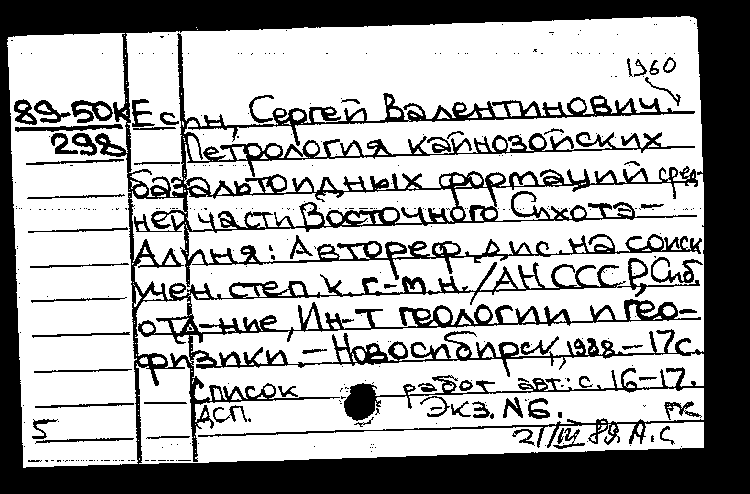 1960
89-50К Есин, Сергей Валентинович.
298 Петрология кайнозойских
базальтоидных формаций сред-
ней части Восточного Сихотэ-
Алиня: Автореф. дис. на соиск.
учен. степ. к. г.-м. н. / АН СССР, Сиб.
отд-ние, Ин-т геологии и гео-
физики. - Новосибирск, 1988. - 17 с.
Список работ авт.: с. 16-17.
ДСП. Экз. № 6. рж
5 21/III 89. А. С